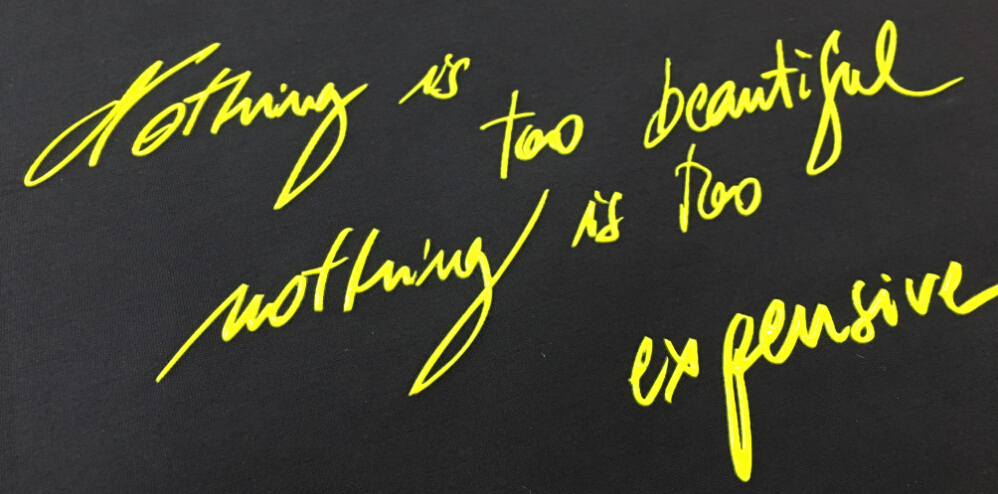 Nothing is
too beautiful
nothing is too
expensive